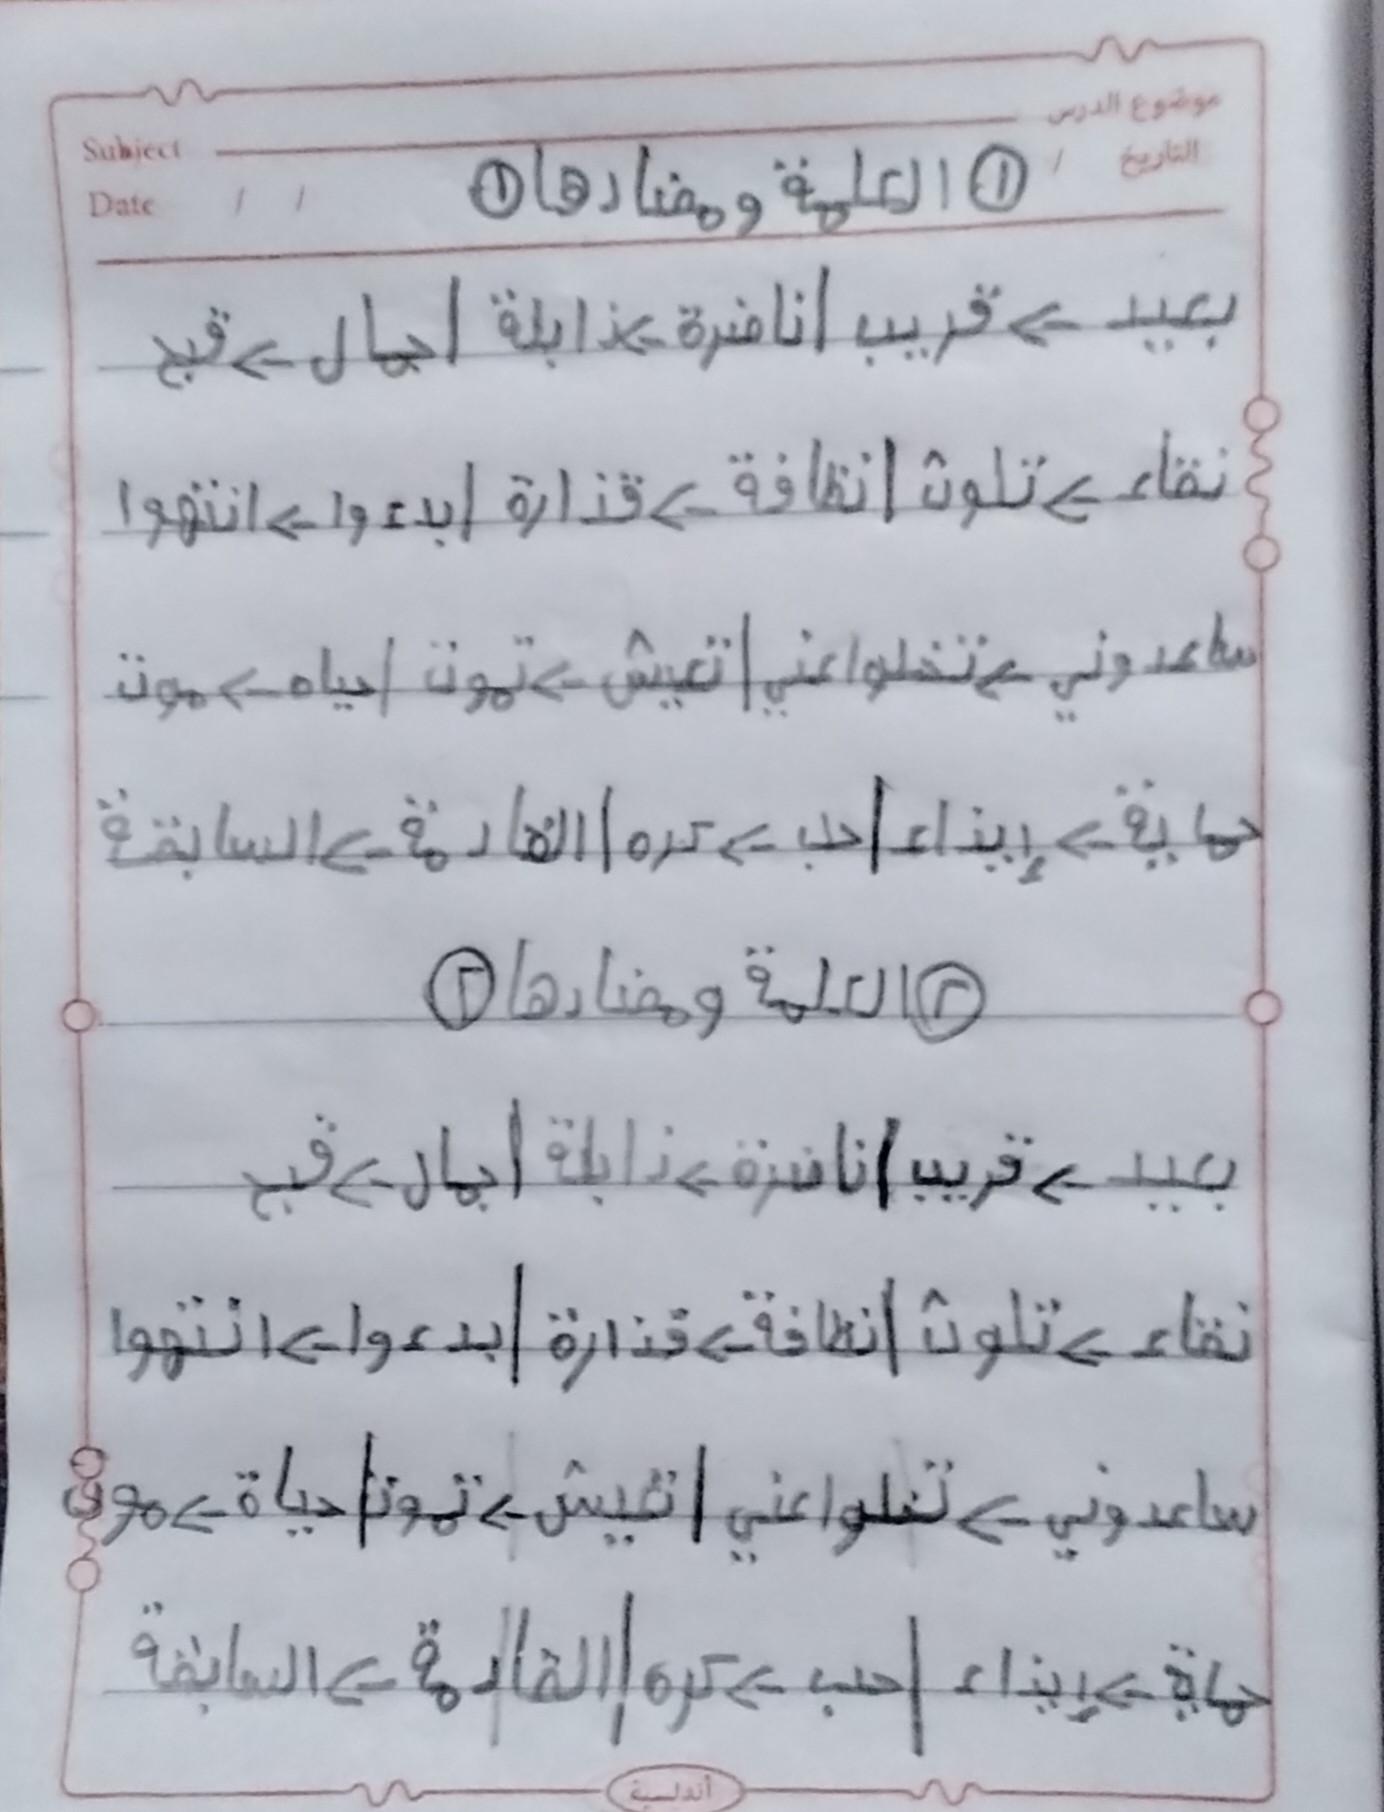 موضوع الدرس
Subject
التاريخ /
Date / /
① الكلمة ومضادها ①
بعيد -> قريب | ناضرة -> ذابلة | جمال -> قبح
نقاء -> تلوث | نظافة -> قذارة | بدءوا -> انتهوا
ساعدوني -> تخلوا عني | تعيش -> تموت | حياه -> موت
حماية -> إيذاء | حب -> كره | القادمة -> السابقة
② الكلمة ومضادها ②
بعيد -> قريب | ناضرة -> ذابلة | جمال -> قبح
نقاء -> تلوث | نظافة -> قذارة | بدءوا -> انتهوا
ساعدوني -> تخلوا عني | تعيش -> تموت | حياة -> موت
حماية -> إيذاء | حب -> كره | القادمة -> السابقة
أندلسية